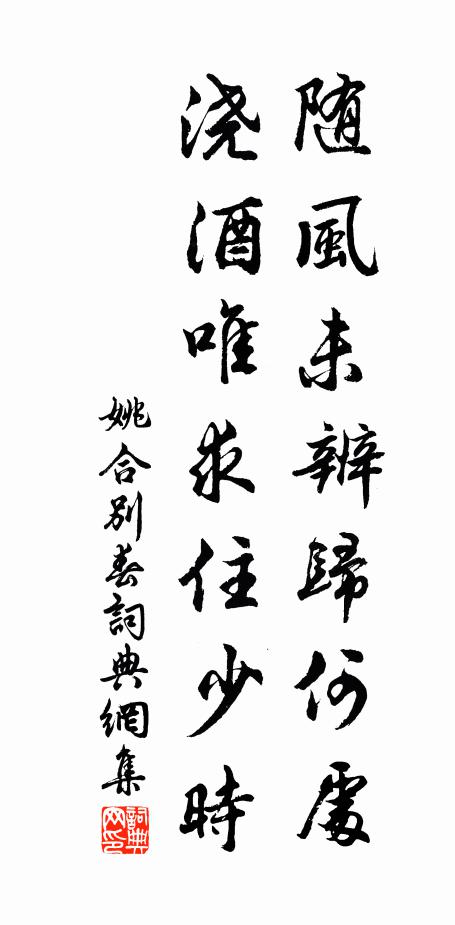 随風未辨歸何處
浇酒唯求住少時
姚合别春詞典網集
詞典網印